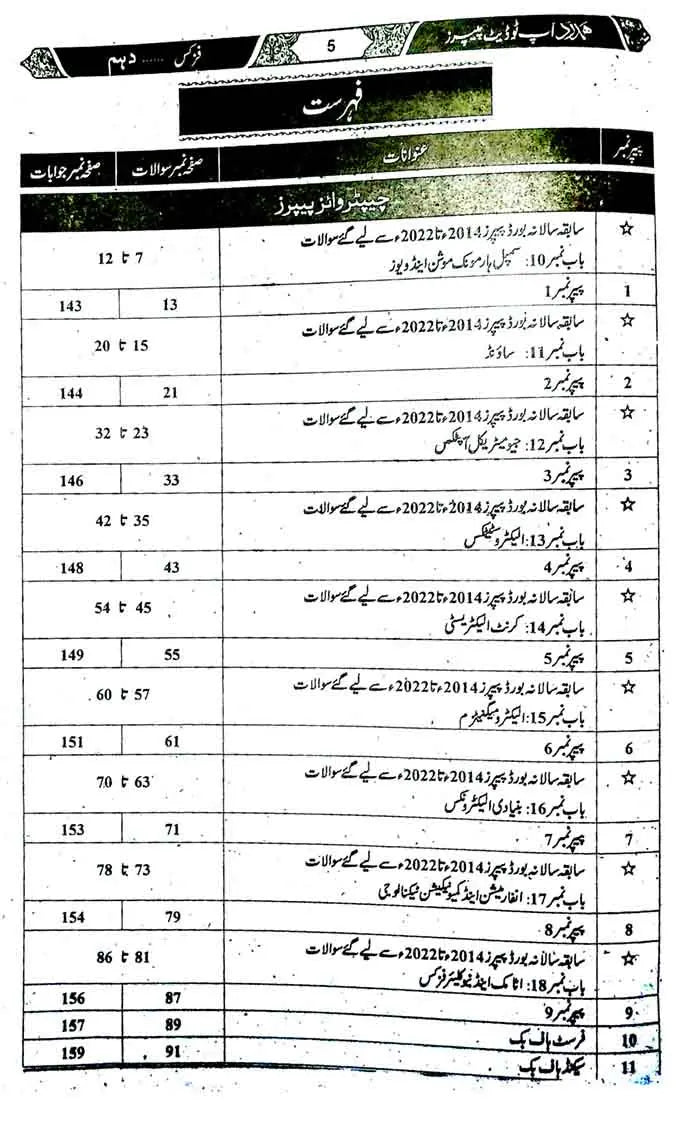 ہمدرد اپ ٹو ڈیٹ پیپرز
5
فزکس ...... دہم
فہرست
پیپر نمبر عنوانات صفحہ نمبر سوالات صفحہ نمبر جوابات
چیپٹر وائز پیپرز
☆ سابقہ سالانہ بورڈ پیپرز 2014ء تا 2022ء سے لیے گئے سوالات
باب نمبر 10: سمپل ہارمونک موشن اینڈ ویوز 7 تا 12
1 پیپر نمبر 1 13 143
☆ سابقہ سالانہ بورڈ پیپرز 2014ء تا 2022ء سے لیے گئے سوالات
باب نمبر 11: ساؤنڈ 15 تا 20
2 پیپر نمبر 2 21 144
☆ سابقہ سالانہ بورڈ پیپرز 2014ء تا 2022ء سے لیے گئے سوالات
باب نمبر 12: جیومیٹریکل آپٹکس 23 تا 32
3 پیپر نمبر 3 33 146
☆ سابقہ سالانہ بورڈ پیپرز 2014ء تا 2022ء سے لیے گئے سوالات
باب نمبر 13: الیکٹروسٹیٹکس 35 تا 42
4 پیپر نمبر 4 43 148
☆ سابقہ سالانہ بورڈ پیپرز 2014ء تا 2022ء سے لیے گئے سوالات
باب نمبر 14: کرنٹ الیکٹریسٹی 45 تا 54
5 پیپر نمبر 5 55 149
☆ سابقہ سالانہ بورڈ پیپرز 2014ء تا 2022ء سے لیے گئے سوالات
باب نمبر 15: الیکٹرومیگنیٹزم 57 تا 60
6 پیپر نمبر 6 61 151
☆ سابقہ سالانہ بورڈ پیپرز 2014ء تا 2022ء سے لیے گئے سوالات
باب نمبر 16: بنیادی الیکٹرونکس 63 تا 70
7 پیپر نمبر 7 71 153
☆ سابقہ سالانہ بورڈ پیپرز 2014ء تا 2022ء سے لیے گئے سوالات
باب نمبر 17: انفارمیشن اینڈ کمیونیکیشن ٹیکنالوجی 73 تا 78
8 پیپر نمبر 8 79 154
☆ سابقہ سالانہ بورڈ پیپرز 2014ء تا 2022ء سے لیے گئے سوالات
باب نمبر 18: اٹامک اینڈ نیوکلیئر فزکس 81 تا 86
9 پیپر نمبر 9 87 156
10 فرسٹ ہاف بک 89 157
11 سیکنڈ ہاف بک 91 159